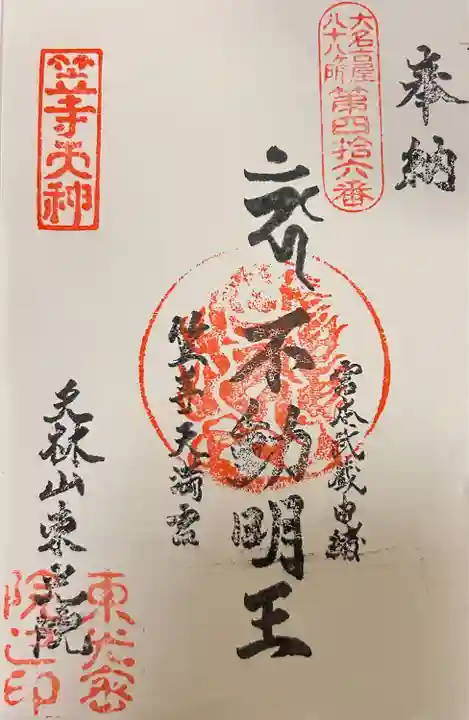 奉納
大名古屋
八十八ヶ所
第四拾六番
宮本武蔵由緒
不動明王
笠寺天満宮
笠寺天神
天林山東光院
東光密
院之印